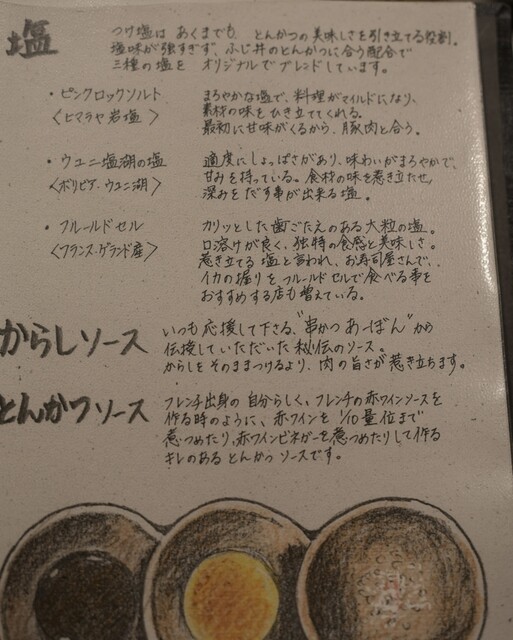 塩
つけ塩は あくまでも、とんかつの美味しさを引き立てる役割。
塩味が強すぎず、ふじ井のとんかつに合う配合で
三種の塩を オリジナルでブレンドしています。
・ピンクロックソルト
〈ヒマラヤ岩塩〉
まろやかな塩で、料理がマイルドになり、
素材の味をひき立ててくれる。
最初に甘味がくるから、豚肉と合う。
・ウユニ塩湖の塩
〈ボリビア・ウユニ湖〉
適度にしょっぱさがあり、味わいがまろやかで、
甘みを持っている。食材の味を惹き立たせ、
深みをだす事が出来る塩。
・フルールドセル
〈フランス・ゲランド産〉
カリッとした歯ごたえのある大粒の塩。
口溶けが良く、独特の食感と美味しさ。
惹き立てる塩と言われ、お寿司屋さんで、
イカの握りをフルールドセルで食べる事を
おすすめする店も増えている。
からしソース
いつも応援して下さる、"串かつ あーぼん"から
伝授していただいた秘伝のソース。
からしをそのままつけるより、肉の旨さが惹き立ちます。
とんかつソース
フレンチ出身の自分らしく、フレンチの赤ワインソースを
作る時のように、赤ワインを 1/10量位まで
煮つめたり、赤ワインビネガーを煮つめたりして作る
キレのあるとんかつソースです。